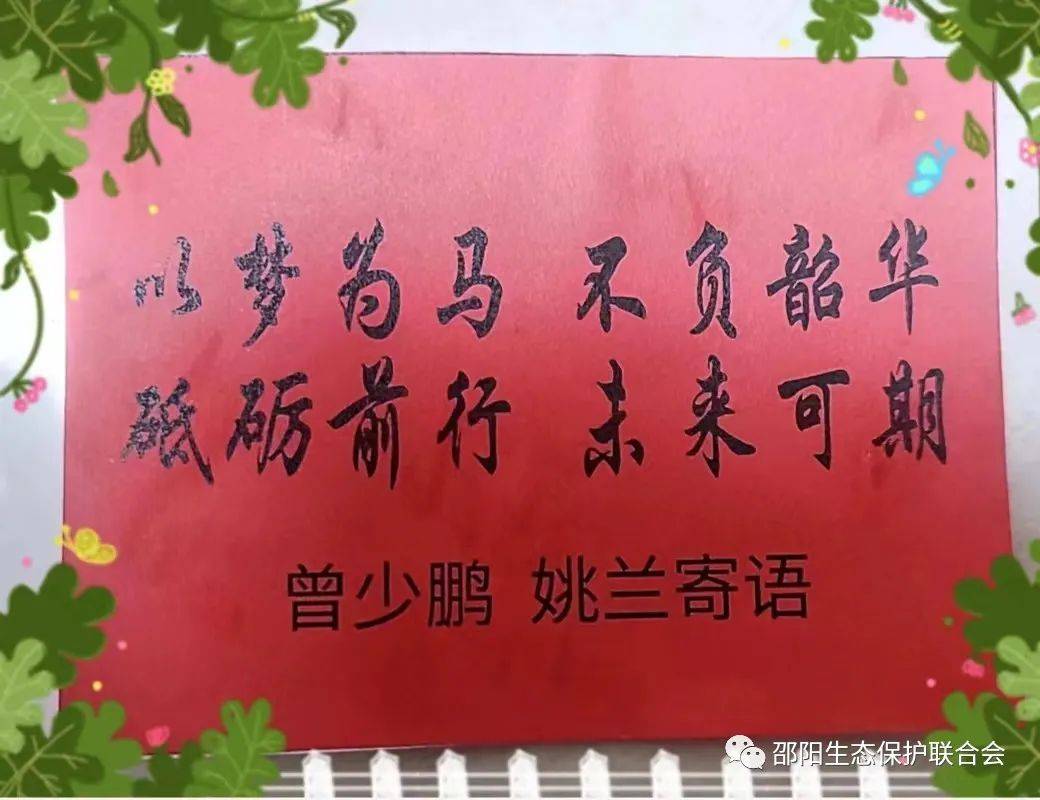 以梦为马 不负韶华
砥砺前行 未来可期
曾少鹏 姚兰寄语
邵阳生态保护联合会